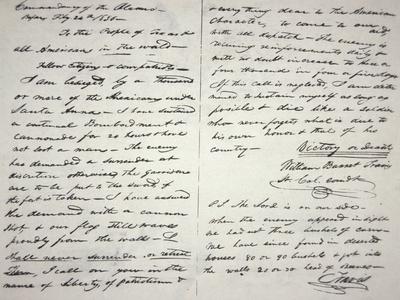 Commandancy of the Alamo—
Bejar Fby 24th 1836—
To the People of Texas &
all Americans in the world—
Fellow Citizens & compatriots—
I am besieged, by a thousand
or more of the Mexicans under
Santa Anna— I have sustained
a continual Bombardment &
cannonade for 24 hours & have
not lost a man— The enemy
has demanded a surrender at
discretion, otherwise, the garrison
are to be put to the sword, if
the fort is taken— I have answered
the demand with a cannon
shot, & our flag still waves
proudly from the walls— I
shall never surrender or retreat
Then, I call on you in the
name of Liberty, of patriotism &
everything dear to the American
character, to come to our aid
with all dispatch— The enemy is
receiving reinforcements daily &
will no doubt increase to three or
four thousand in four or five days.
If this call is neglected, I am deter
mined to sustain myself as long as
possible & die like a soldier
who never forgets what is due to
his own honor & that of his
country—
Victory or Death
William Barret Travis
Lt. Col. comdt
P.S. The Lord is on our side—
when the enemy appeared in sight
we had not three bushels of corn—
We have since found in deserted
houses 80 or 90 bushels & got into
the walls 20 or 30 head of Beeves—
Travis